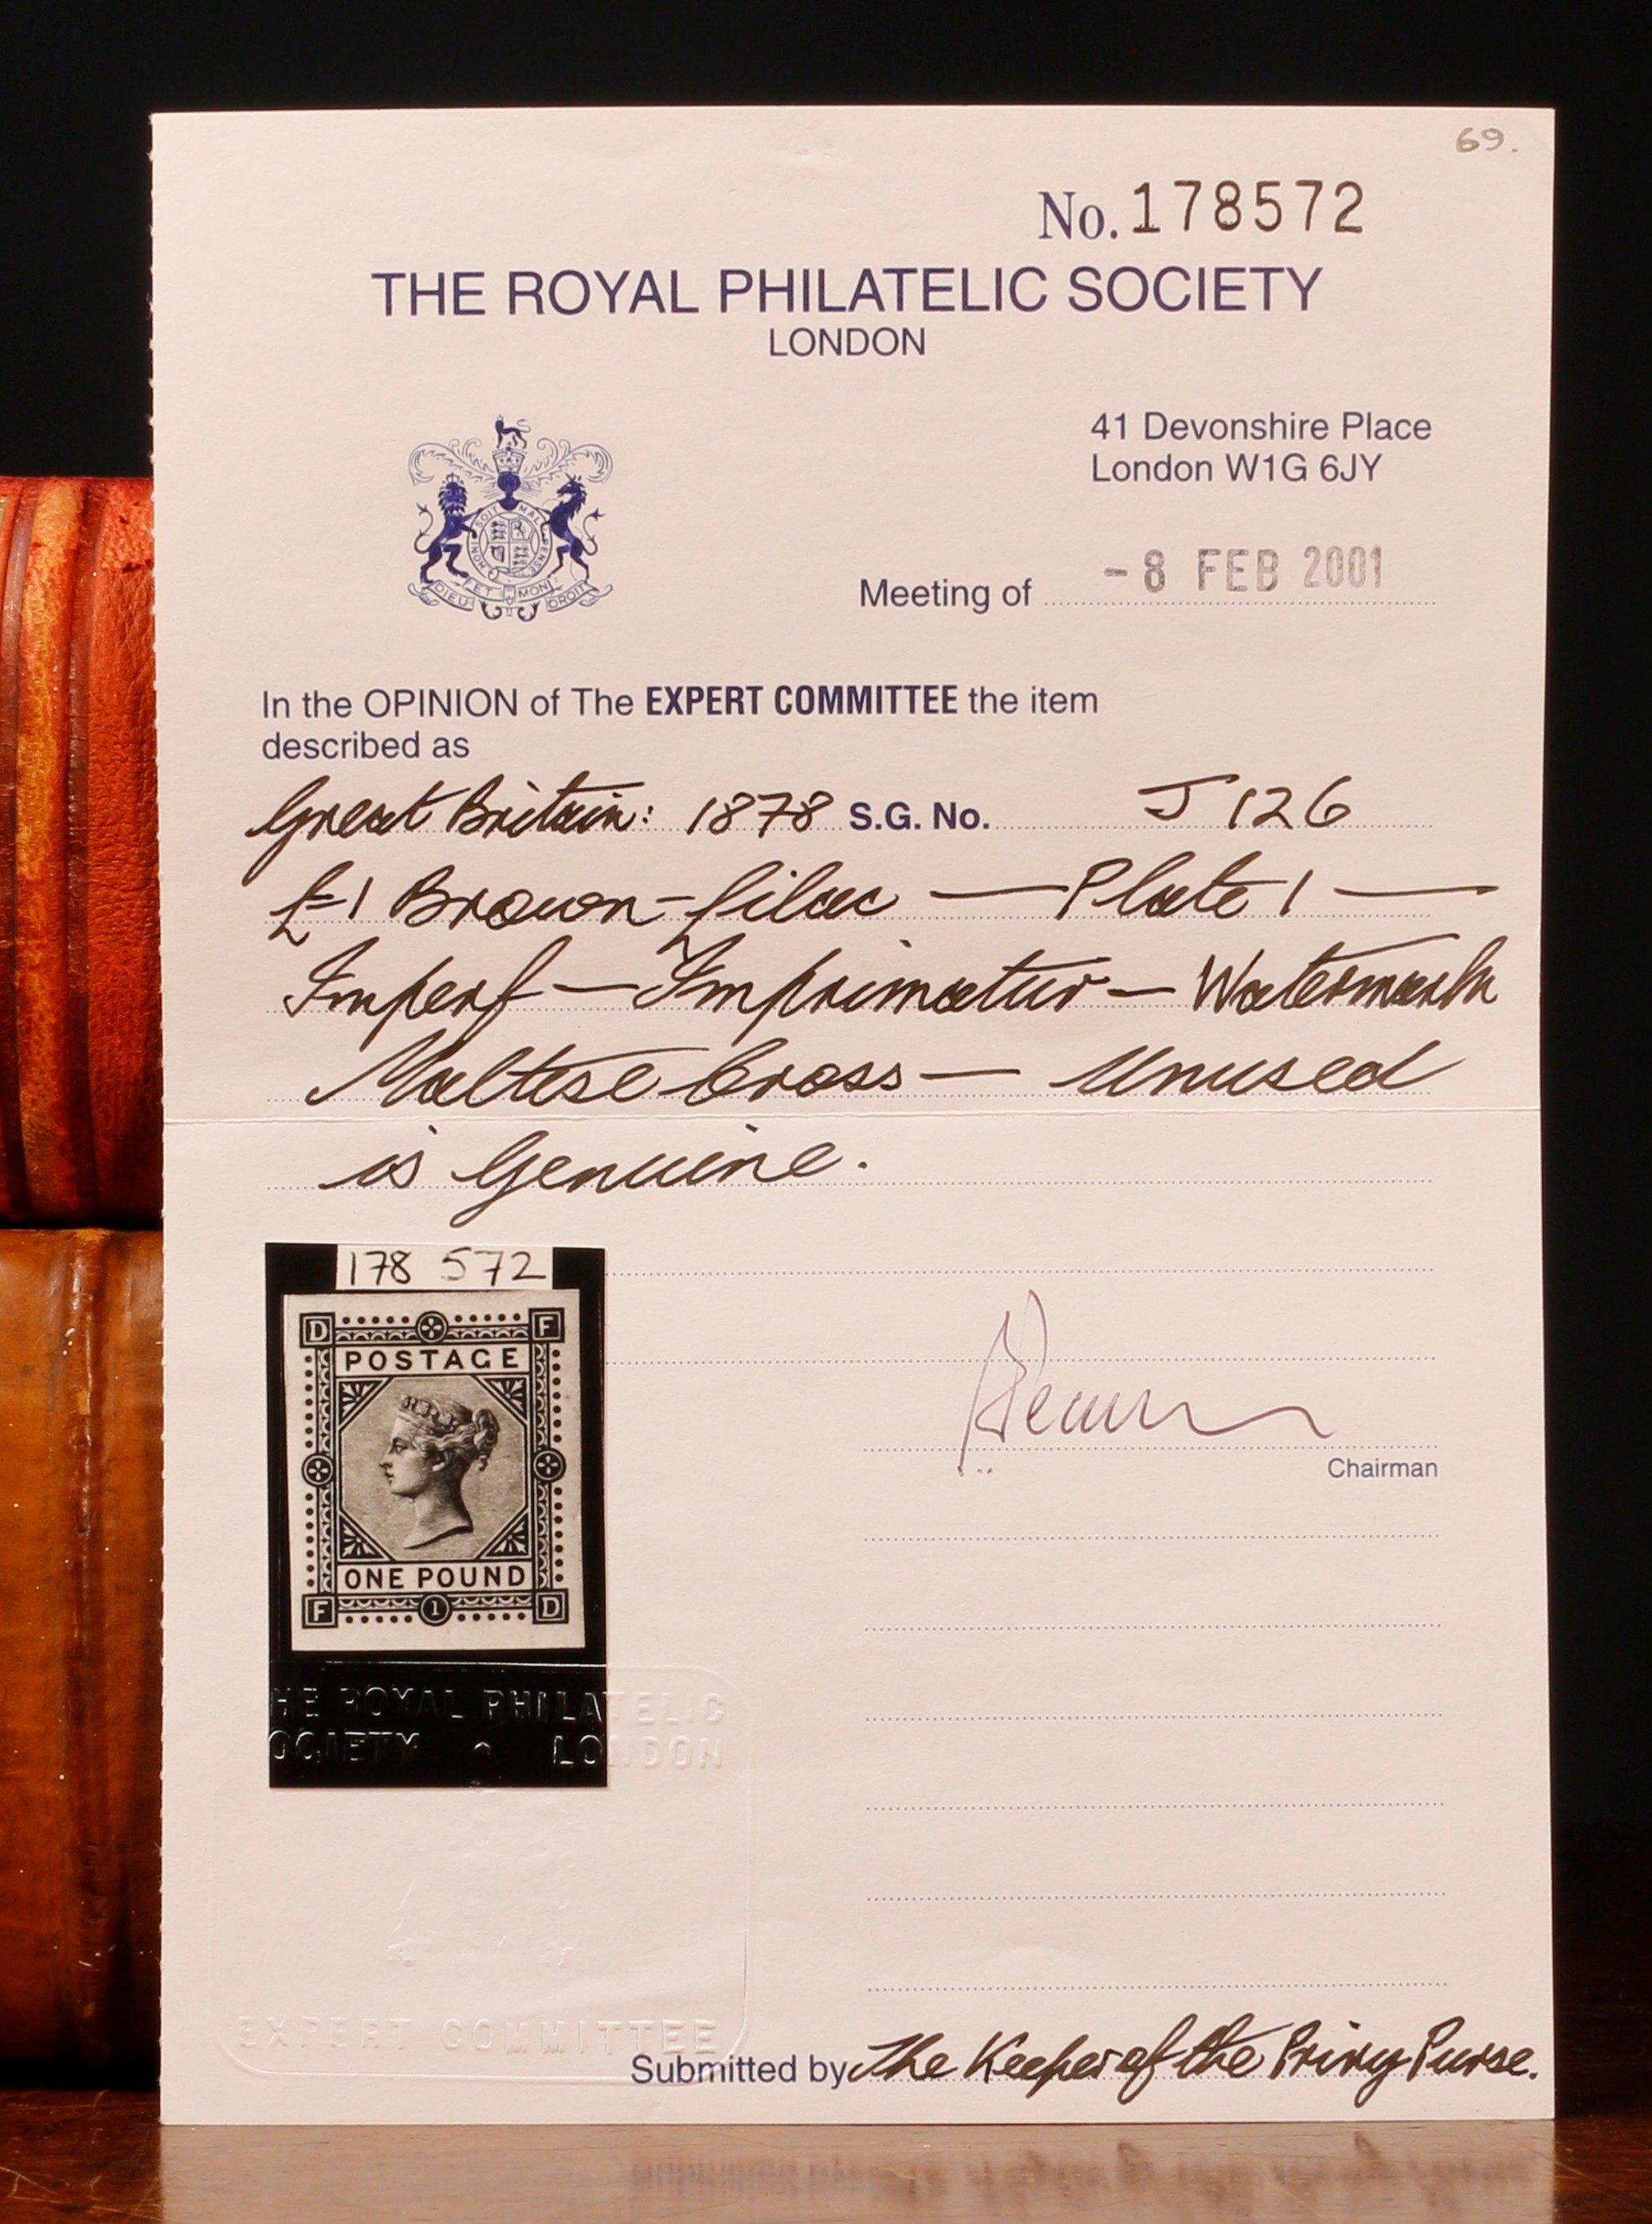 69.
No. 178572
THE ROYAL PHILATELIC SOCIETY
LONDON
41 Devonshire Place
London W1G 6JY
HONI SOIT QUI MAL Y PENSE
DIEU ET MON DROIT
Meeting of - 8 FEB 2001
In the OPINION of The EXPERT COMMITTEE the item
described as
Great Britain: 1878 S.G. No. J126
£1 Brown-lilac — Plate 1 —
Imperf — Imprimatur — Watermark
Maltese Cross — Unused
is Genuine.
178 572
D F
POSTAGE
ONE POUND
F 1 D
Chairman
THE ROYAL PHILATELIC
SOCIETY LONDON
EXPERT COMMITTEE
Submitted by The Keeper of the Privy Purse.